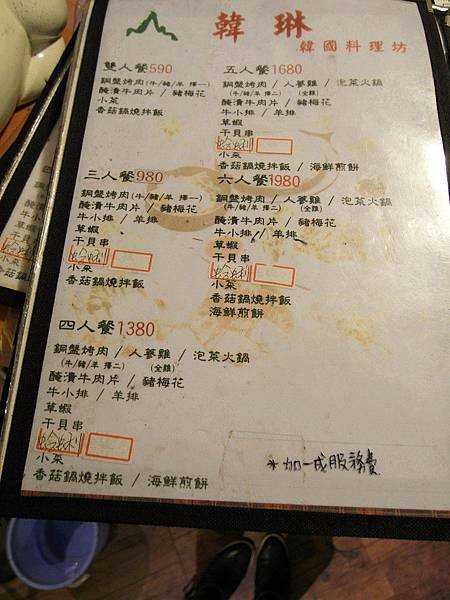 韓琳
韓國料理坊
雙人餐590
銅盤烤肉(牛/豬/羊 擇一)
醃漬牛肉片 / 豬梅花
小菜
香菇鍋燒拌飯
三人餐980
銅盤烤肉(牛/豬/羊 擇一)
醃漬牛肉片 / 豬梅花
牛小排 / 羊排
草蝦
干貝串
蛤蜊
小菜
香菇鍋燒拌飯
四人餐1380
銅盤烤肉 / 人蔘雞 / 泡菜火鍋
(牛/豬/羊 擇二) (全雞)
醃漬牛肉片 / 豬梅花
牛小排 / 羊排
草蝦
干貝串
蛤蜊
小菜
香菇鍋燒拌飯 / 海鮮煎餅
五人餐1680
銅盤烤肉 / 人蔘雞 / 泡菜火鍋
(牛/豬/羊 擇二) (全雞)
醃漬牛肉片 / 豬梅花
牛小排 / 羊排
草蝦
干貝串
蛤蜊
小菜
香菇鍋燒拌飯 / 海鮮煎餅
六人餐1980
銅盤烤肉 / 人蔘雞 / 泡菜火鍋
(牛/豬/羊 擇二) (全雞)
醃漬牛肉片 / 豬梅花
牛小排 / 羊排
草蝦
干貝串
蛤蜊
小菜
香菇鍋燒拌飯
海鮮煎餅
*加一成服務費